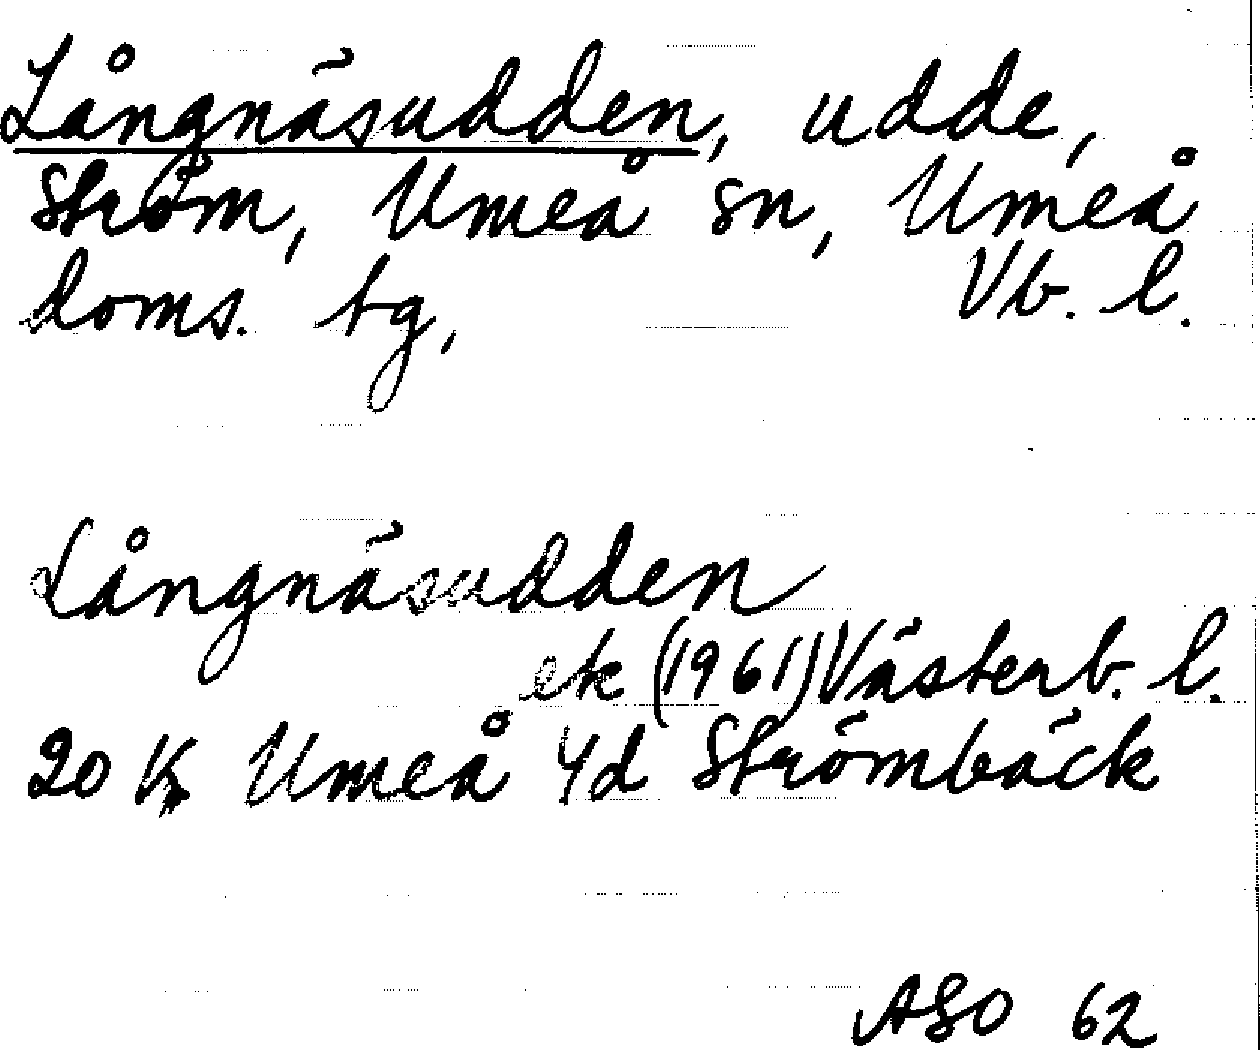 Långnäsudden, udde,
Ström, Umeå sn, Umeå
doms. tg, Vb. l.
Långnäsudden
ek (1961) Västerb. l.
20 K Umeå 4d Strömbäck
ASO 62